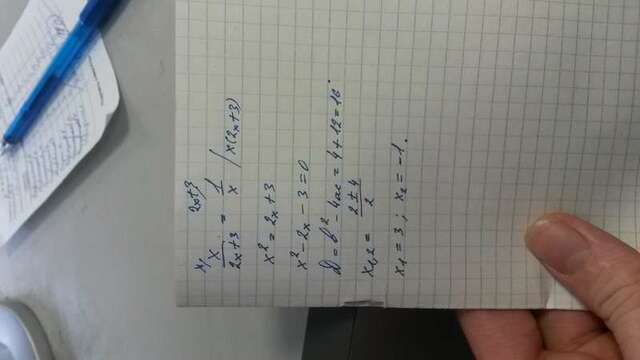 x/ 2x+3/
x/(2x+3) = 1/x / x(2x+3)
x² = 2x + 3
x² - 2x - 3 = 0
D = b² - 4ac = 4 + 12 = 16
x₁,₂ = (2 ± 4)/2
x₁ = 3 ; x₂ = -1.